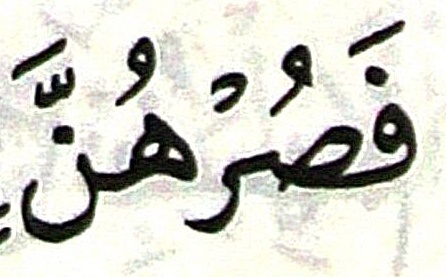 فَصُرْهُنَّ